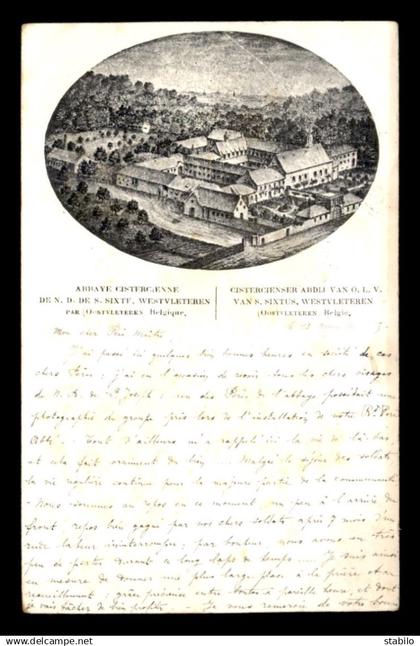 ABBAYE CISTERCIENNE
DE N. D. DE S. SIXTE, WESTVLETEREN
PAR (OOSTVLETEREN Belgique.
CISTERCIENSER ABDIJ VAN O. L. V.
VAN S. SIXTUS, WESTVLETEREN
(OOSTVLETEREN Belgie.
Mon cher Père
J'ai passé ici quelques bien bonnes heures en société de vos
chers Pères ; j'ai eu l'occasion de revoir tous les chers visages
de N. D. de St Joseph : un des Pères de l'abbaye possédait une
photographie du groupe pris lors de l'installation de notre Rd Père
Abbé - Tout d'ailleurs m'a rappelé ici la vie de là bas,
et cela fait vraiment du bien ... Malgré le séjour des soldats
la vie régulière continue pour la majeure partie de la communauté
- Nous sommes au repos en ce moment, un peu à l'arrière du
front, repos bien gagné par nos chers soldats après 7 mois d'un
rude labeur ininterrompu ; par bonheur nous avons eu très
peu de pertes durant ce long laps de temps .... Je suis ainsi
en mesure de donner une plus large place à la prière et au
recueillement ; grâce précieuse entre toutes à pareille heure, et dont
je vais tâcher de bien profiter - Je vous remercie de votre bonne